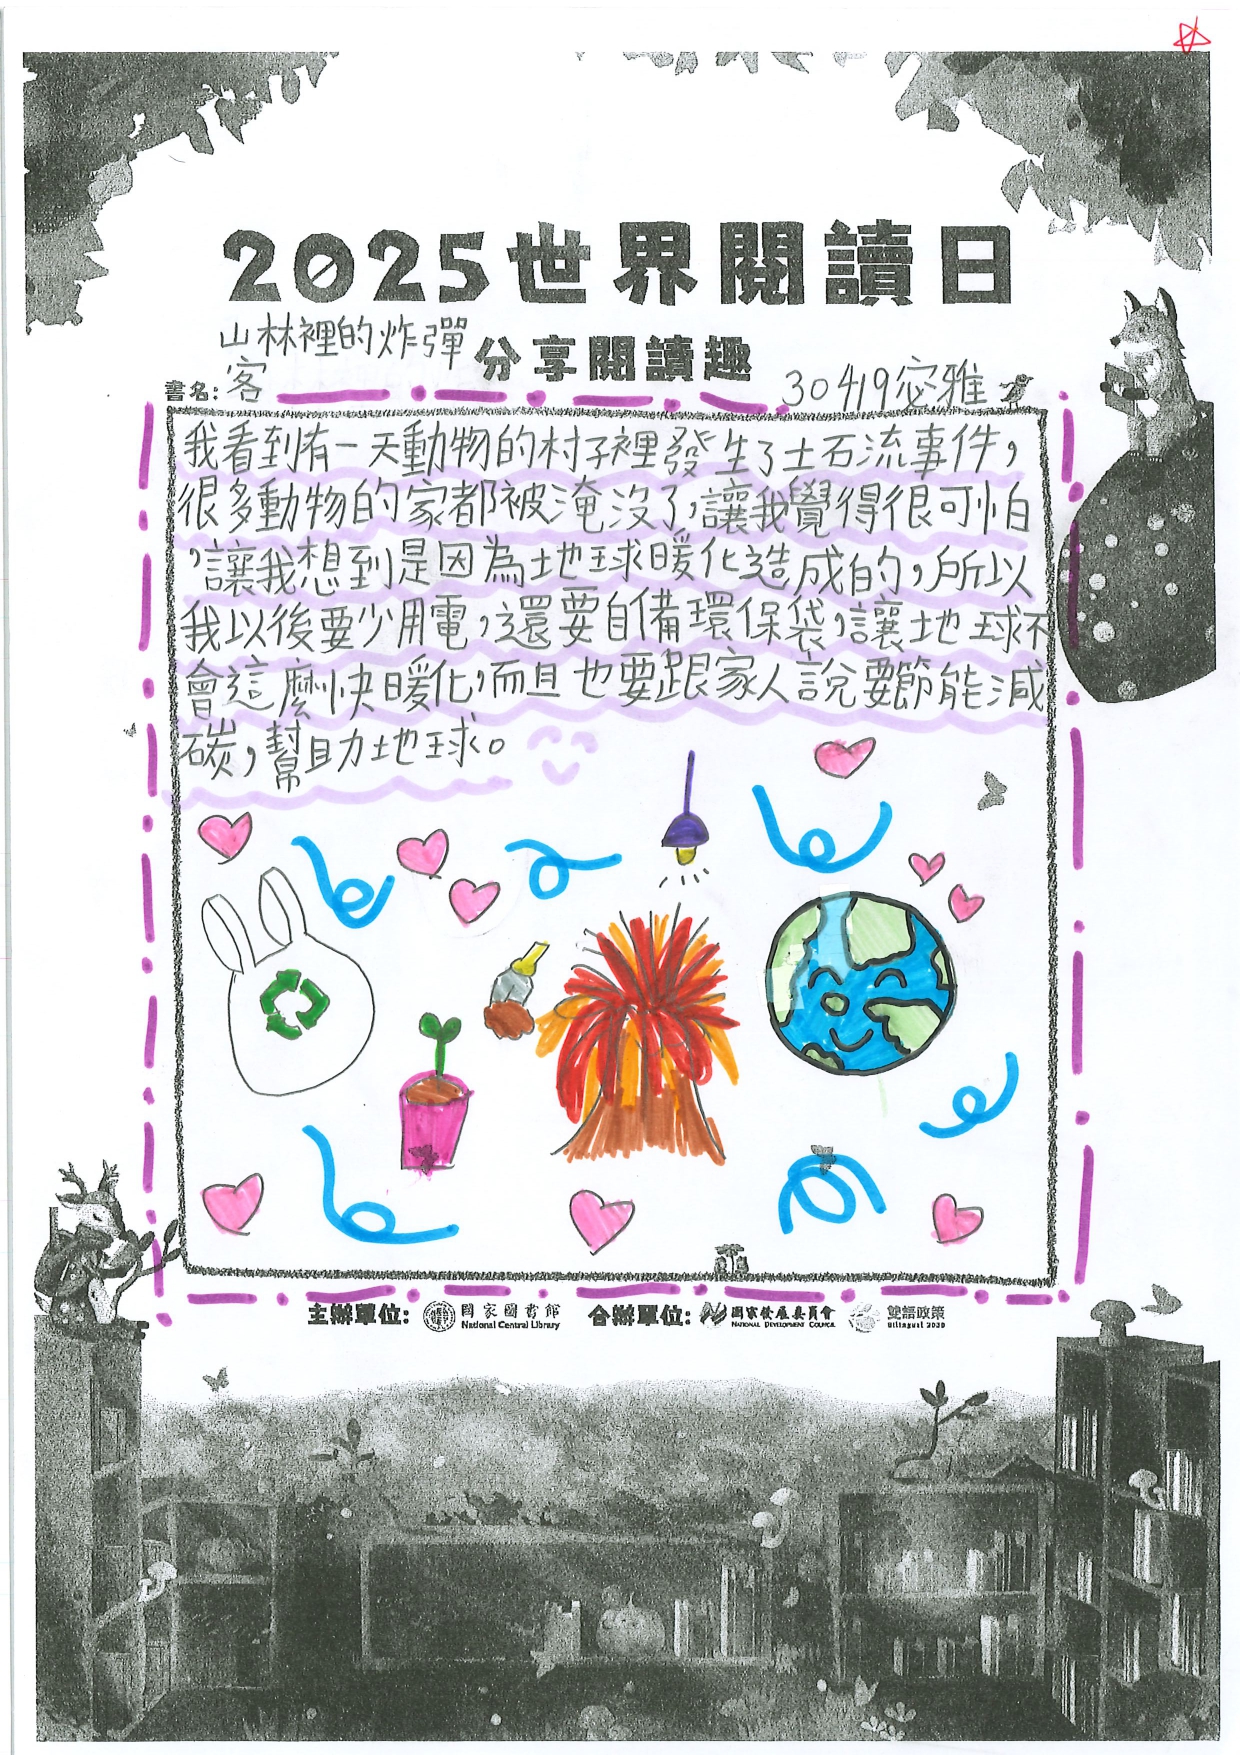 2025世界閱讀日
山林裡的炸彈
分享閱讀趣
書名: 客
30419宓雅
我看到有一天動物的村子裡發生了土石流事件，
很多動物的家都被淹沒了，讓我覺得很可怕
，讓我想到是因為地球暖化造成的，所以
我以後要少用電，還要自備環保袋，讓地球不
會這麼快暖化，而且也要跟家人說要節能減
碳，幫助地球。
主辦單位: 國家圖書館 National Central Library 合辦單位: 國家發展委員會 NATIONAL DEVELOPMENT COUNCIL 雙語政策 Bilingual 2030